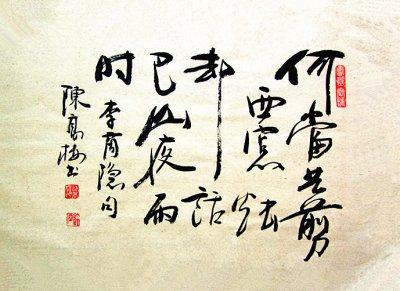 何當共剪
西窓燭
却話
巴山夜雨
時 李商隐句
陳高梅书